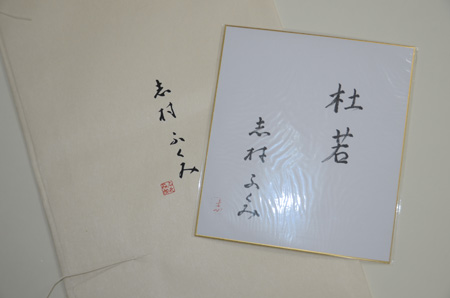 志村ふくみ
杜若
志村ふくみ